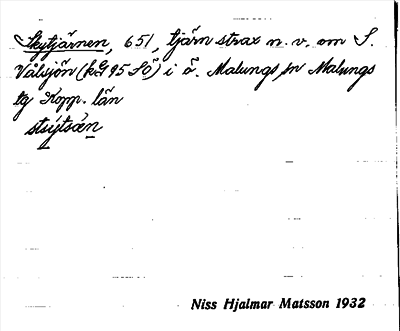 Skytjärnen, 651, tjärn strax n. v. om S.
Vålsjön (kG 95 SÖ) i ö. Malungs sn Malungs
tg Kopp. län
stsýtsän
Niss Hjalmar Matsson 1932